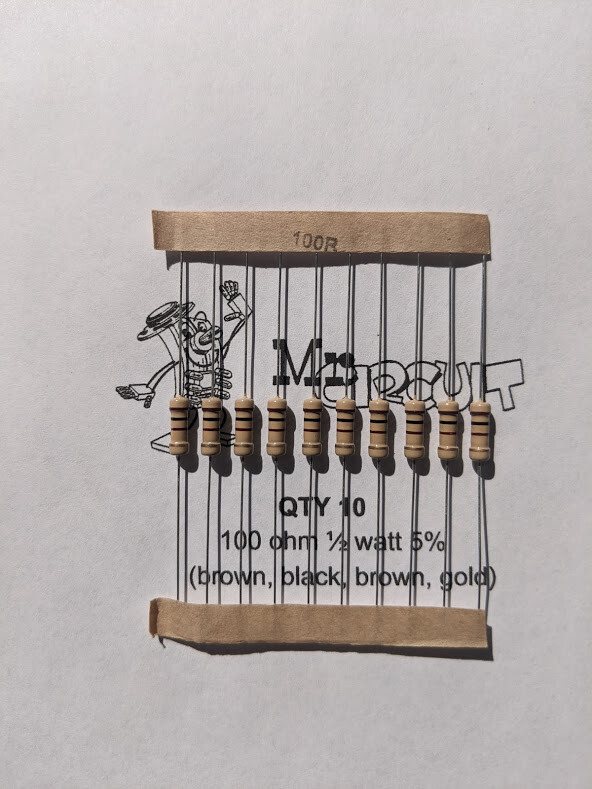 100R
Mr CIRCUIT
QTY 10
100 ohm ½ watt 5%
(brown, black, brown, gold)